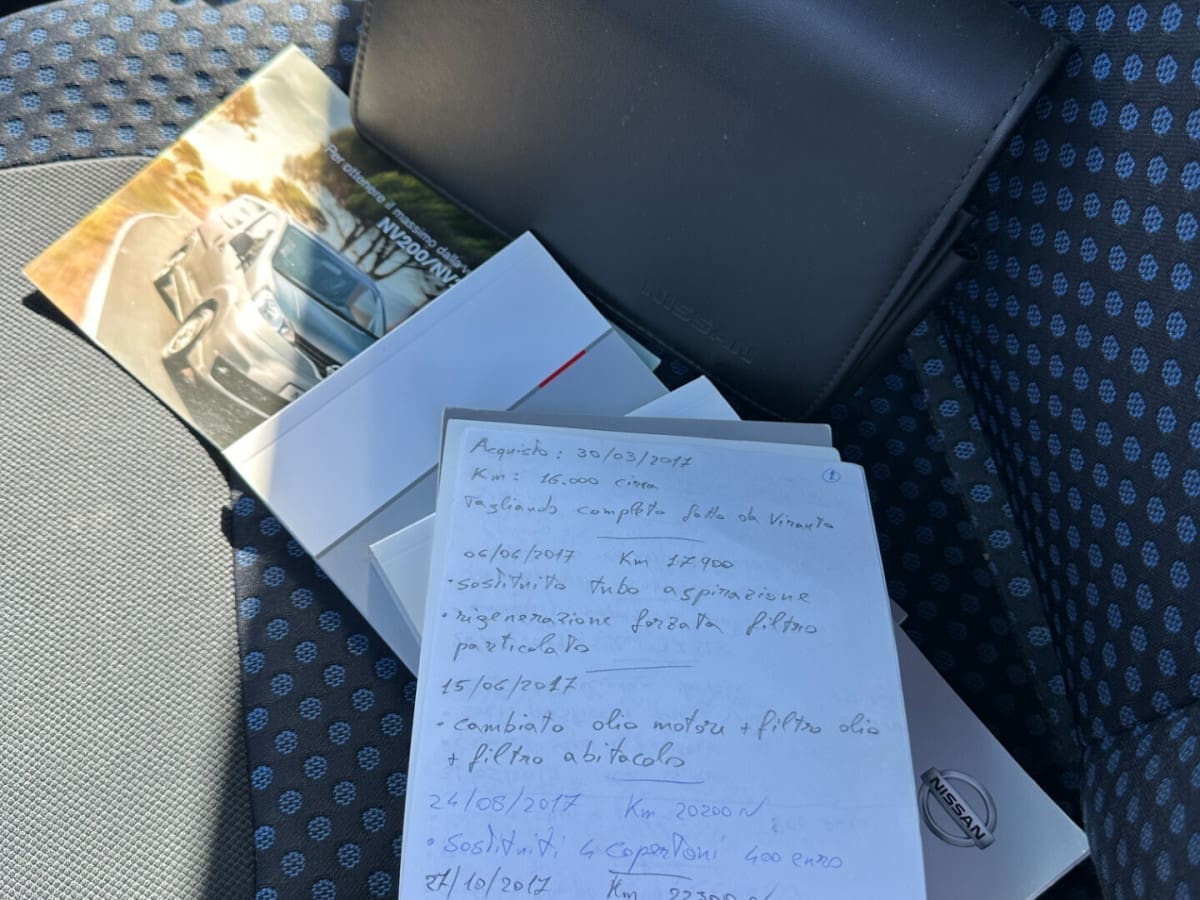 Per ottenere il massimo dalla
NV200/NV
NISSAN
1
Acquisto: 30/03/2017
Km: 16.000 circa
Tagliando completo fatto da
06/06/2017 Km 17900
• sostituito tubo aspirazione
• rigenerazione forzata filtro
particolato
15/06/2017
• cambiato olio motore + filtro olio
+ filtro abitacolo
24/08/2017 Km 20200 N
• Sostituiti 4 copertoni 400 euro
27/10/2017 Km
NISSAN